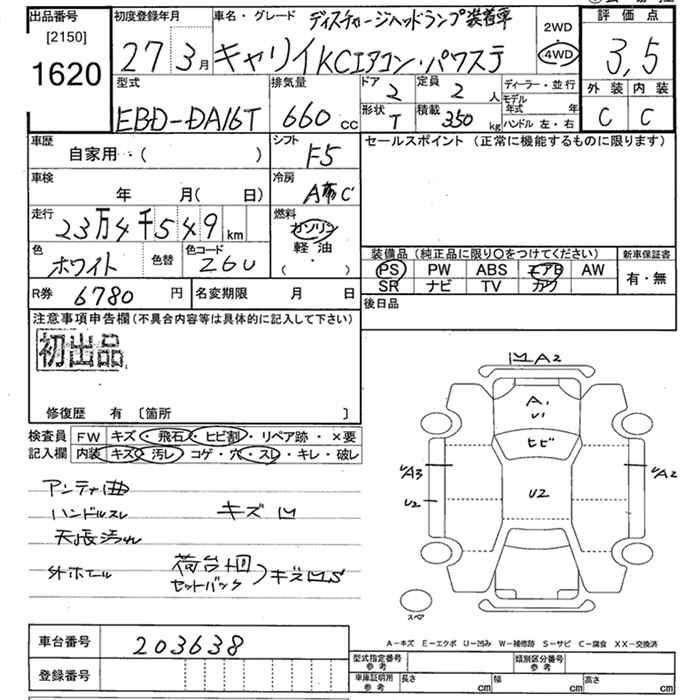 出品番号
[2150]
1620
初度登録年月
27 3月
車名・グレード ディスチャージヘッドランプ装着車
キャリイKCエアコン・パワステ
2WD
4WD
評価点
3,5
外装 内装
C C
型式
EBD-DA16T
排気量
660 cc
ドア 2
定員 2 人
形状 T
積載 350 kg
ディーラー・並行
モデル年式 年
ハンドル 左・右
車歴
自家用・( )
シフト
F5
セールスポイント (正常に機能するものに限ります)
車検
年 月( 日)
冷房
走行
23万4千549 km
燃料
ガソリン
軽油
( ・ )
色
ホワイト
色替
色コード
Z6U
装備品(純正品に限り○をつけてください)
PS PW ABS エアB AW
SR ナビ TV カワ
新車保証書
有・無
R券 6780 円
名変期限 月 日
後日品
注意事項申告欄(不具合内容等は具体的に記入して下さい)
初出品
修復歴 有 〔箇所 〕
検査員
記入欄
FW キズ・飛石・ヒビ割・リペア跡・×要
内装 キズ・汚レ・コゲ・穴・スレ・キレ・破レ
アンテナ曲
ハンドルスレ
キズ凹
天張汚れ
外ホイール
荷台+回
セットバック
キズ凹S
A2
A1
U1
ヒビ
U2
UA3
U2
UA2
スペア
車台番号 203638
登録番号
A-キズ E-エクボ U-凹み W-補修跡 S-サビ C-腐食 XX-交換済
型式指定番号
参考
類別区分番号
参考
車庫証明用
参考
長さ cm 幅 cm 高さ cm